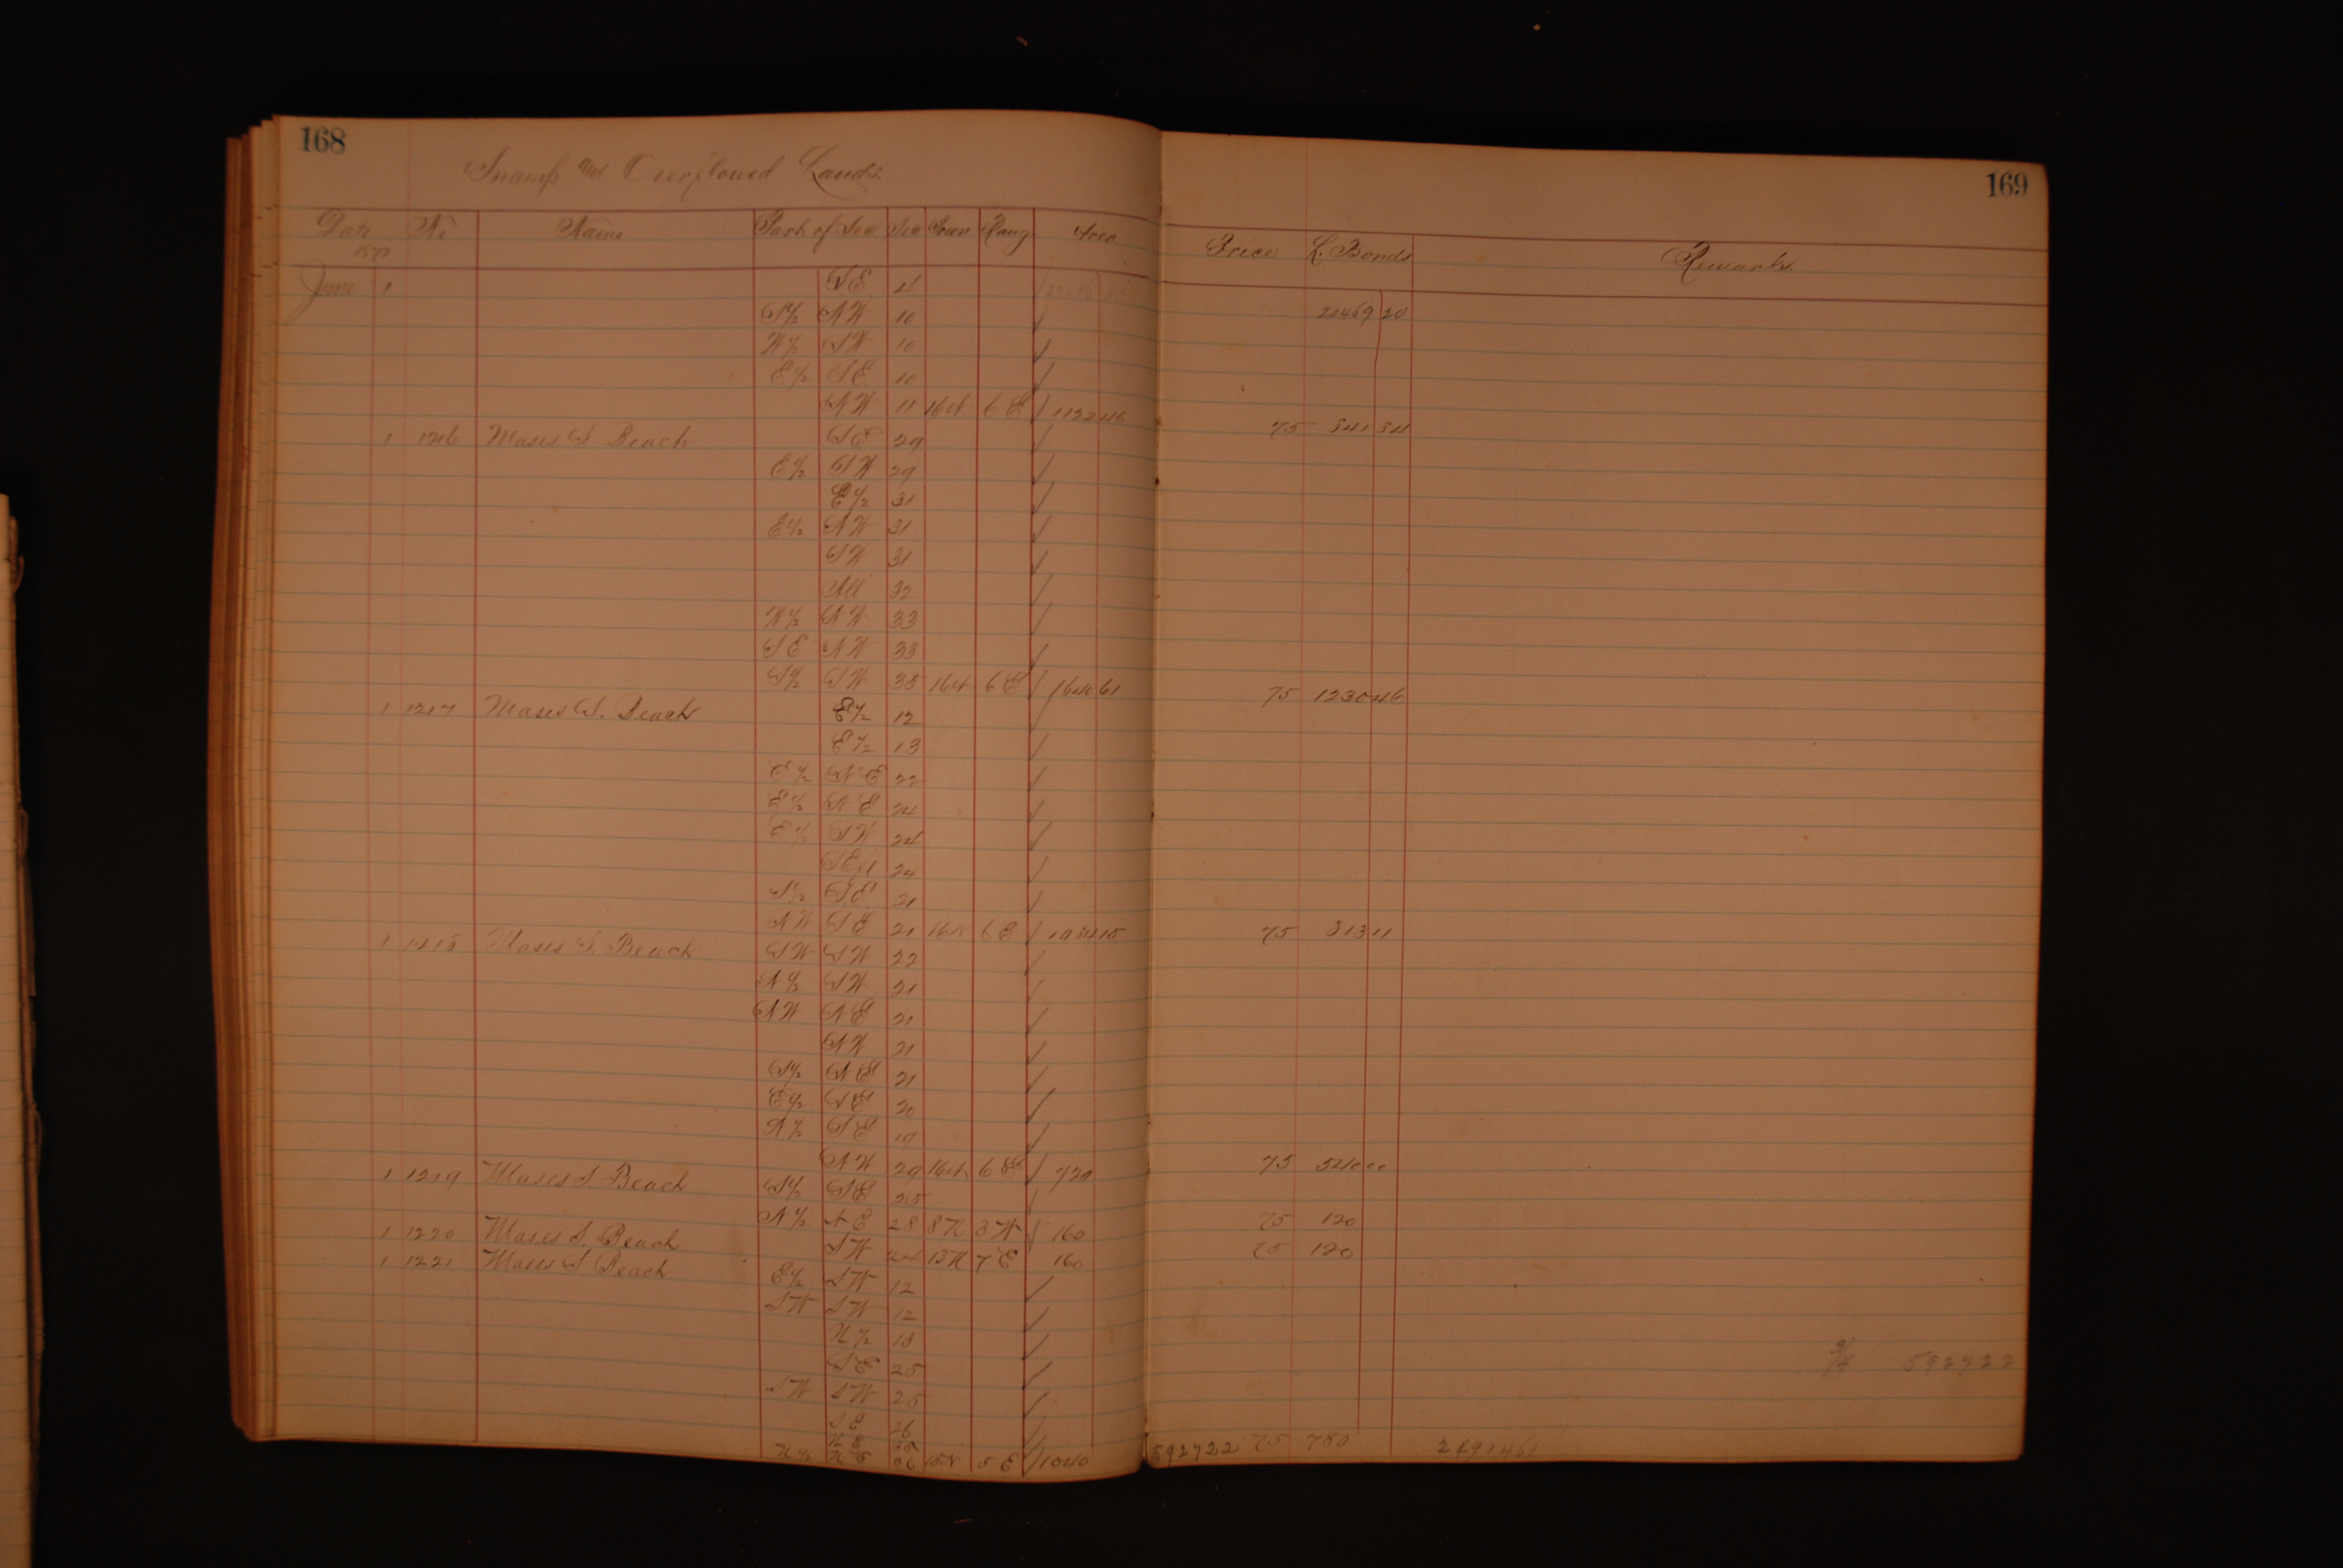 168
Swamp and Overflowed Lands.
Date No Name Part of Sec Sec Town Rang Area
June 1 SE 4
S½ NW 10
W½ SW 10
E½ SE 10
NW 11 16N 6E 1122 46
1 1216 Moses S Beach SE 29
E½ SW 29
E½ 31
E½ NW 31
SW 31
All 32
W½ NW 33
SE NW 33
S½ SW 35 16N 6E 1640 61
1 1217 Moses S. Beach E½ 12
E½ 13
E½ NE 22
E½ NE 24
E½ SW 24
SE 24
S½ SE 21
NW SE 21 16N 6E 1084 15
1 1218 Moses S. Beach SW SW 22
N½ SW 21
NW NE 21
NW 21
S½ NE 21
E½ SE 20
N½ SE 19
NW 29 16N 6E 720
1 1219 Moses S. Beach S½ SE 25
N½ NE 28 8N 3W 160
1 1220 Moses S. Beach SW 24 15N 7E 160
1 1221 Moses S. Beach E½ SW 12
SW SW 12
N½ 13
SE 25
SW SW 25
SE 26
NE 35
N½ 36 15N 5E 1040
169
Price L. Bonds Remarks.
21469 20
75 841 84
75 1230 46
75 813 11
75 540 00
75 120
75 120
3/4 592722
592722 75 780